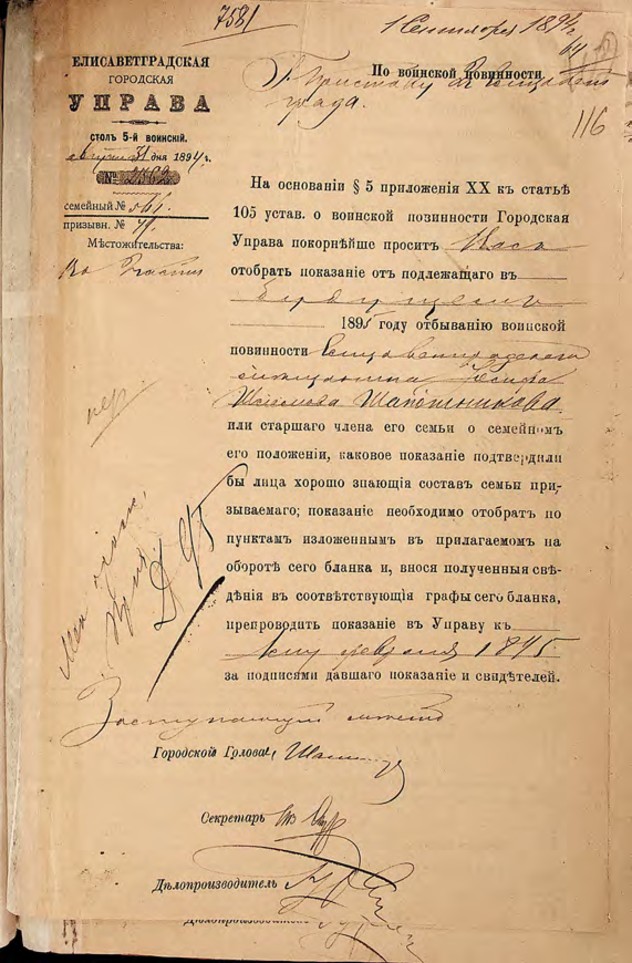 7581
1 Сентября 1894
ЕЛИСАВЕТГРАДСКАЯ
ГОРОДСКАЯ
УПРАВА
СТОЛЪ 5-й ВОИНСКІЙ.
Августа 31 дня 1894 г.
№ 2562
СЕМЕЙНЫЙ № 561.
ПРИЗЫВН. №
Мѣстожительства:
По воинской повинности
Приставу
града.
116
На основаніи § 5 приложенія XX къ статьѣ
105 устав. о воинской повинности Городская
Управа покорнѣйше проситъ Васъ
отобрать показаніе отъ подлежащаго въ
будущемъ
1895 году отбыванію воинской
повинности Елисаветградскаго
мѣщанина Іосифа
Шапошникова
или старшаго члена его семьи о семейномъ
его положеніи, каковое показаніе подтвердили
бы лица хорошо знающія составъ семьи при-
зываемаго; показаніе необходимо отобрать по
пунктамъ изложеннымъ въ прилагаемомъ на
оборотѣ сего бланка и, внося полученныя свѣ-
дѣнія въ соотвѣтствующія графы сего бланка,
препроводить показаніе въ Управу къ
1му февраля 1895
за подписями давшаго показаніе и свидѣтелей.
Заступающій мѣсто
Городской Головы,
Секретарь
Дѣлопроизводитель
Дѣлопроизводитель